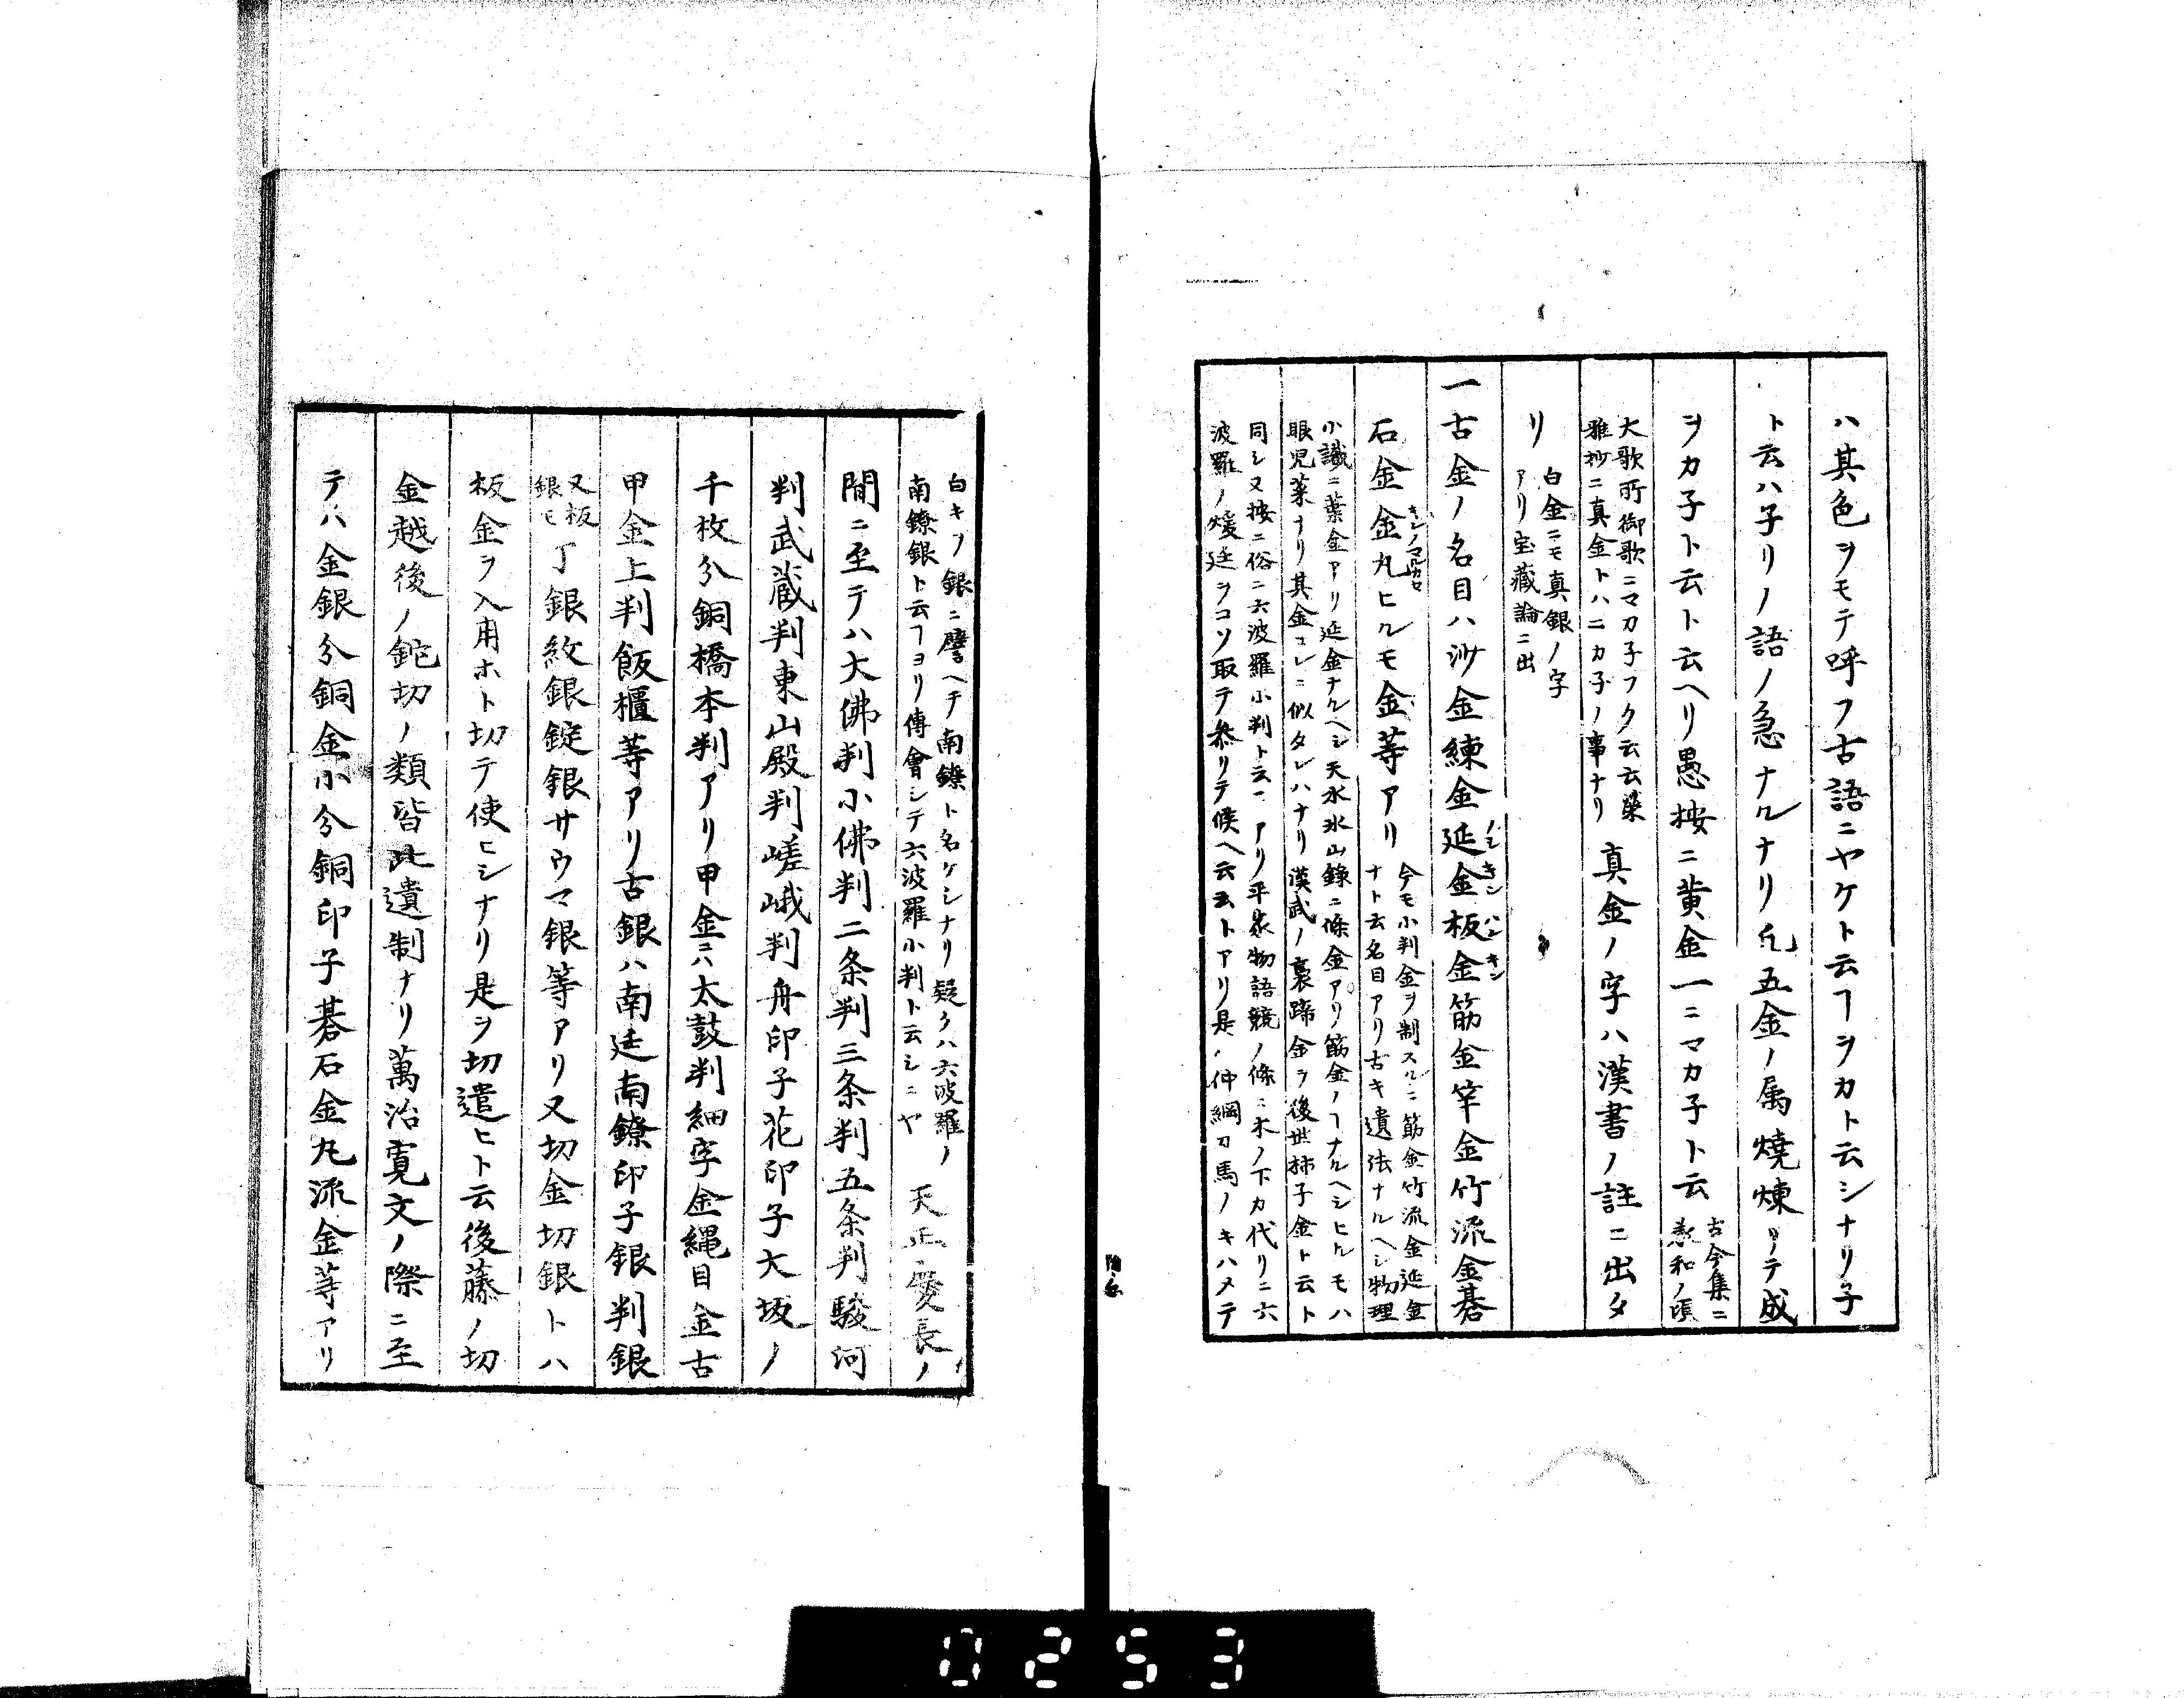 ハ其色ヲモテ呼フ古語ニヤケト云ヿヲカト云シナリ子
ト云ハ子リノ語ノ急ナルナリ凡五金ノ属焼煉リテ成
ヲカ子ト云ト云ヘリ愚按ニ黄金一ニマカ子ト云
古今集ニ
承和ノ頃
大歌所御歌ニマカ子フク云云榮
雅抄ニ真金トハニカ子ノ事ナリ
真金ノ字ハ漢書ノ註ニ出タ
リ
白金ニモ真銀ノ字
アリ宝蔵論ニ出
一古金ノ名目ハ沙金練金延金板金筋金竿金竹流金碁
石金金丸ヒルモ金等アリ
今モ小判金ヲ制スルニ筋金竹流金延金
ナト云名目アリ古キ遺法ナルヘシ物理
小識ニ葉金アリ延金ナルヘシ天水氷山錄ニ條金アリ筋金ノヿナルヘシヒルモハ
眼児薬ナリ其金コレニ似タレハナリ漢武ノ裹蹄金ヲ後世柿子金ト云ト
同シ又按ニ俗ニ六波羅小判ト云ヿアリ平家物語競ノ條ニ木ノ下カ代リニ六
波羅ノ煖廷ヲコソ取テ参リテ候ヘ云云トアリ是仲綱カ馬ノキハメテ
白キヲ銀ニ譬ヘテ南鐐ト名ケシナリ疑クハ六波羅ノ
南鐐銀ト云ヿヨリ傳會シテ六波羅小判ト云シニヤ
天正慶長ノ
間ニ至テハ大佛判小佛判二条判三条判五条判駿河
判武蔵判東山殿判嵯峨判舟印子花印子大坂ノ
千枚分銅橋本判アリ甲金ニハ太鼓判細字金縄目金古
甲金上判飯櫃等アリ古銀ハ南廷南鐐印子銀判銀
又板
銀モ
丁銀紋銀錠銀サウマ銀等アリ又切金切銀トハ
板金ヲ入用ホト切テ使ヒシナリ是ヲ切遣ヒト云後藤ノ切
金越後ノ鉈切ノ類皆此遺制ナリ萬治寛文ノ際ニ至
テハ金銀分銅金小分銅印子碁石金丸流金等アリ
0253